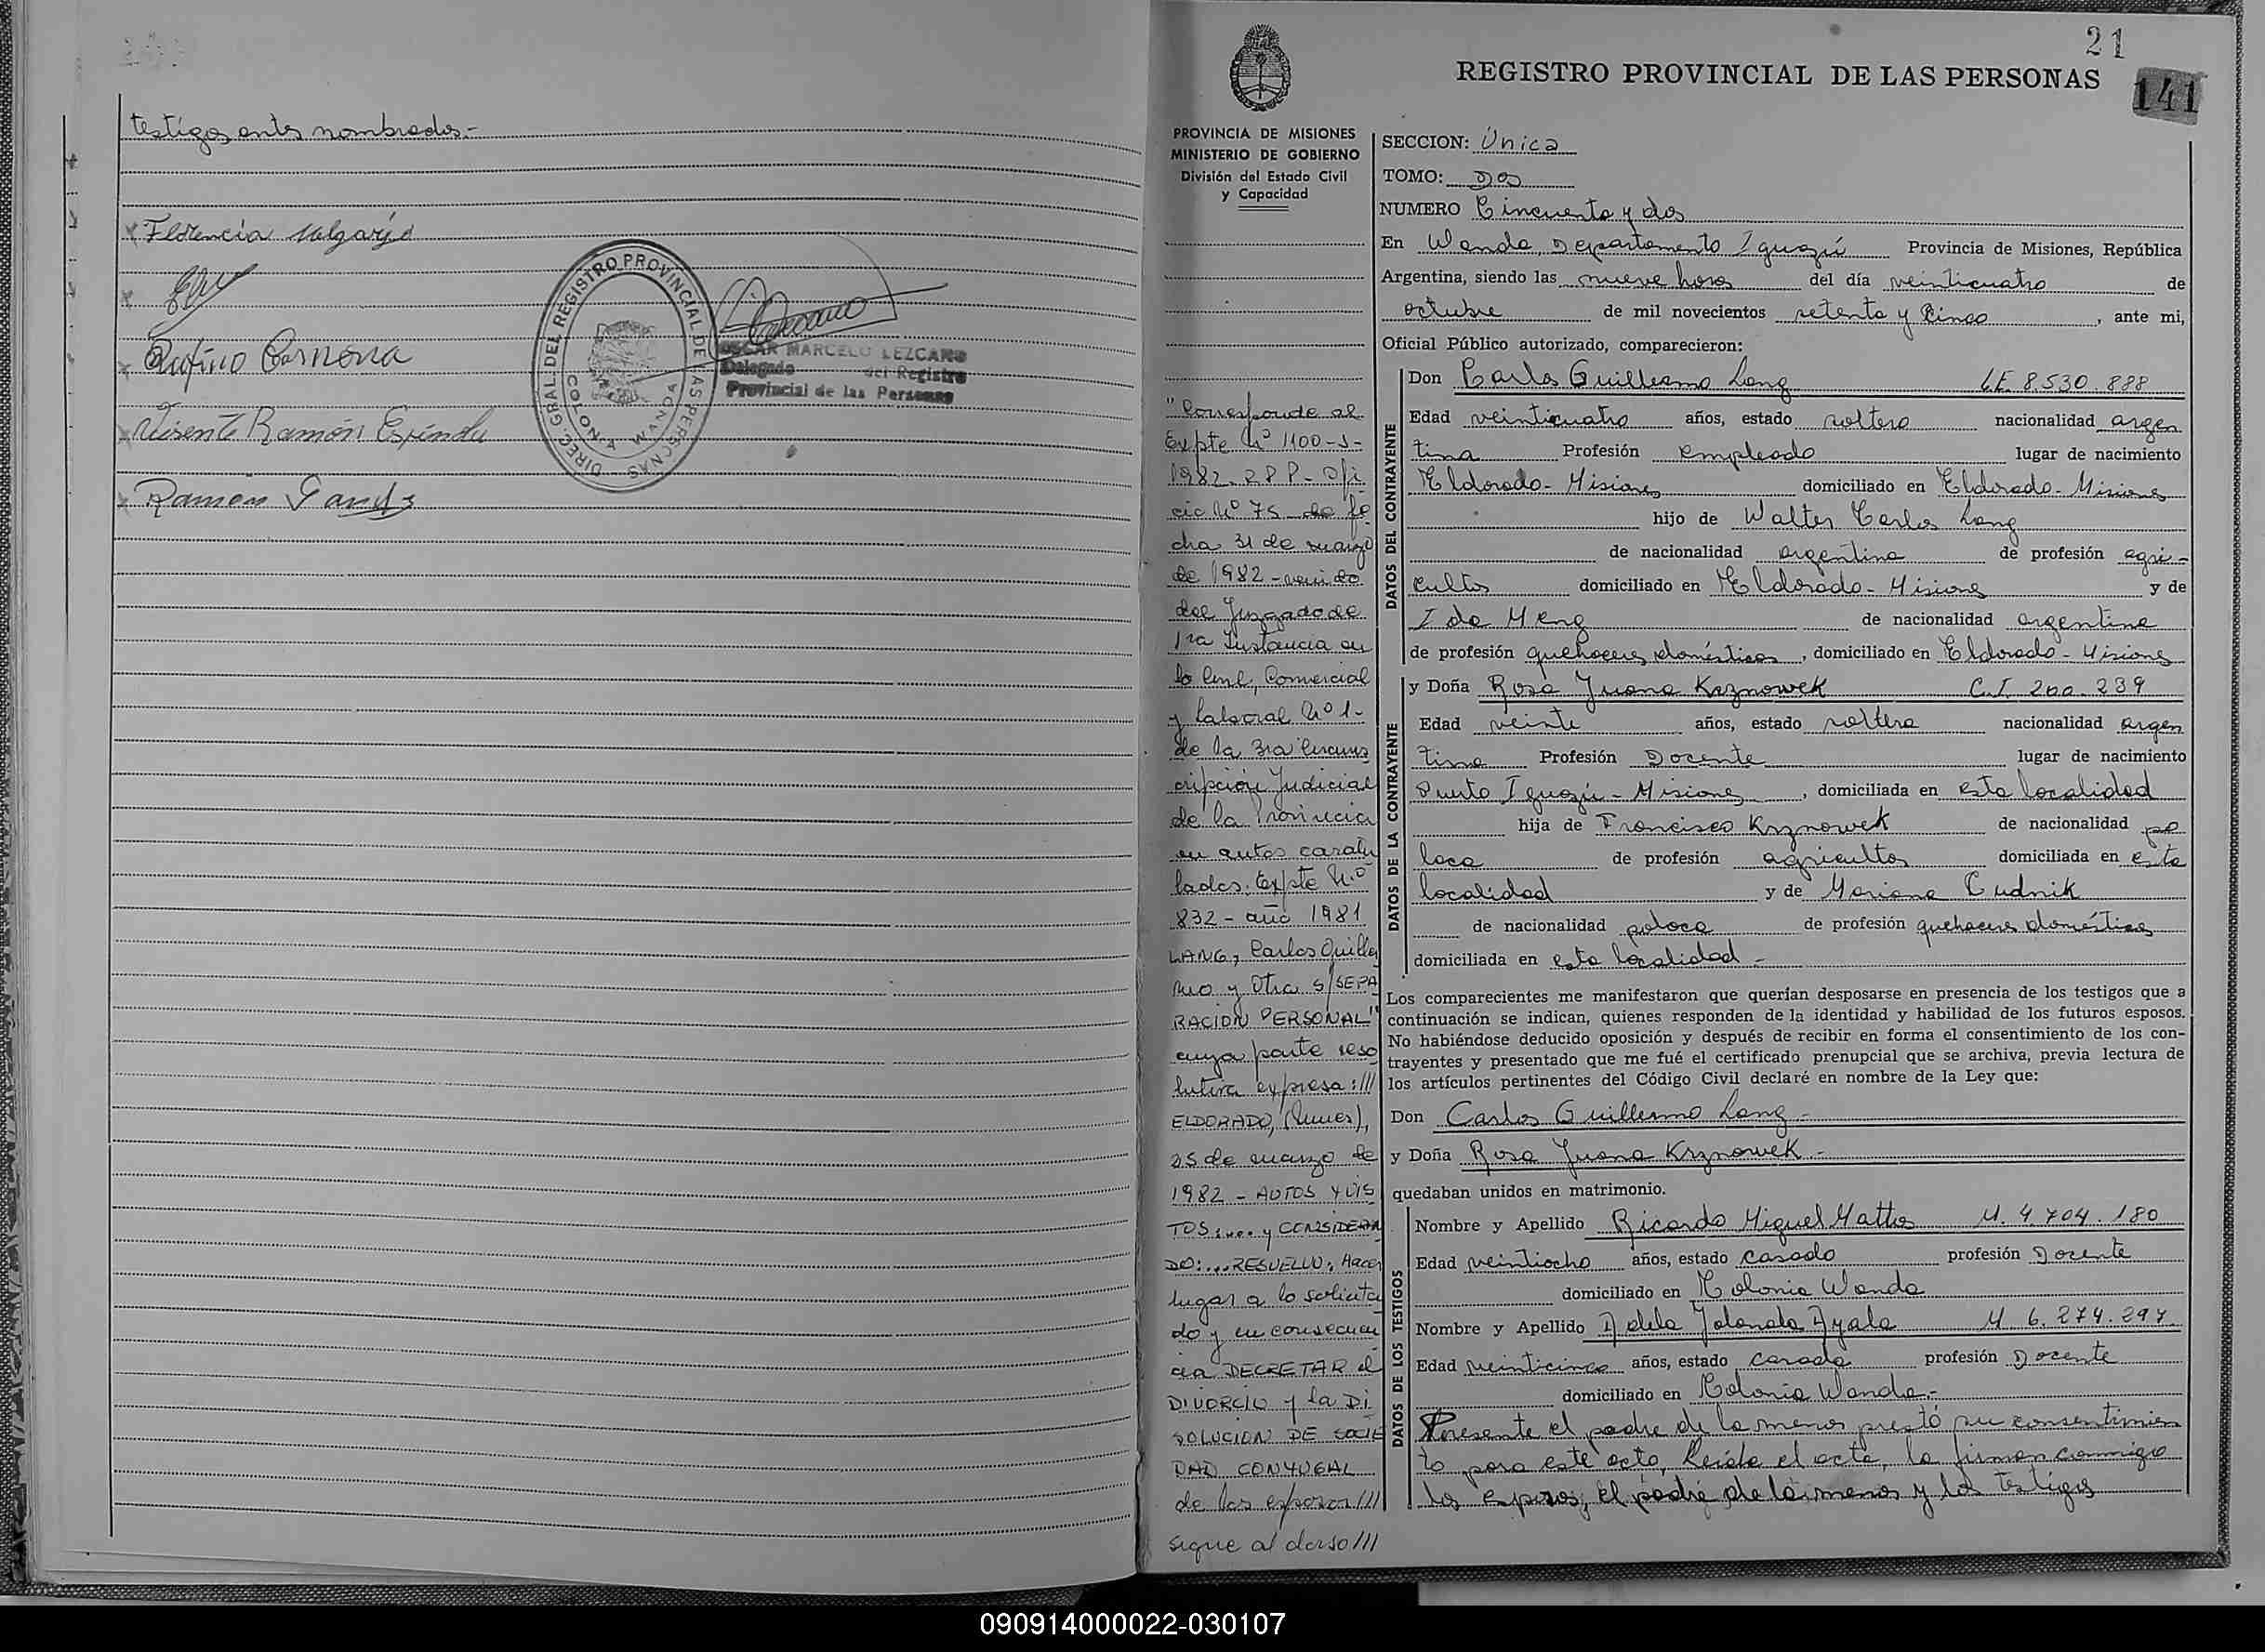 testigos antes nombrados.-
Florencia Melgarejo
Rufino Carmona
Visente Ramón Espindu
Ramón
DIREC. GRAL. DEL REGISTRO PROVINCIAL DE LAS PERSONAS
COLONIA WANDA
OSCAR MARCELO LEZCANO
Delegado del Registro
Provincial de las Personas
21
REGISTRO PROVINCIAL DE LAS PERSONAS
141
PROVINCIA DE MISIONES
MINISTERIO DE GOBIERNO
División del Estado Civil
y Capacidad
"Corresponde al
Expte Nº 1100-J-
1982. RPP- Ofi
cio Nº 75 de fe
cha 31 de marzo
de 1982 - venido
del Juzgado de
1ra Instancia en
lo Civil, Comercial
y Laboral Nº 1-
de la 3ra Circuns
cripción Judicial
de la Provincia
en autos caratu
lados: Expte N.º
832 - año 1981
LANG, Carlos Guiller
mo y Otra S/SEPA
RACION PERSONAL"
cuya parte reso
lutiva expresa: ///
ELDORADO, (Mnes),
25 de marzo de
1982 - AUTOS Y VIS
TOS:... y CONSIDERAN
DO:... RESUELVO: Hacer
lugar a lo solicita
do y en consecuen
cia DECRETAR el
DIVORCIO y la DI
SOLUCION DE SOCIE
DAD CONYUGAL
de los esposos ///
sigue al dorso ///
SECCION: Única
TOMO: Dos
NUMERO Cincuenta y dos
En Wanda, Departamento Iguazú Provincia de Misiones, República
Argentina, siendo las nueve horas del día veinticuatro de
octubre de mil novecientos setenta y cinco, ante mi,
Oficial Público autorizado, comparecieron:
DATOS DEL CONTRAYENTE
Don Carlos Guillermo Lang L.E. 8.530.888
Edad veinticuatro años, estado soltero nacionalidad argen
tina Profesión empleado lugar de nacimiento
Eldorado - Misiones domiciliado en Eldorado - Misiones
hijo de Walter Carlos Lang
de nacionalidad argentina de profesión agri-
cultor domiciliado en Eldorado - Misiones y de
Ida Meng de nacionalidad argentina
de profesión quehaceres domésticos, domiciliado en Eldorado - Misiones
DATOS DE LA CONTRAYENTE
y Doña Rosa Juana Krznowek C.I. 200.239
Edad veinte años, estado soltera nacionalidad argen
tina Profesión Docente lugar de nacimiento
Puerto Iguazú - Misiones, domiciliada en esta localidad
hija de Francisco Krznowek de nacionalidad po
laca de profesión agricultor domiciliada en esta
localidad y de Mariana Cudnik
de nacionalidad polaca de profesión quehaceres domésticos
domiciliada en esta localidad -
Los comparecientes me manifestaron que querían desposarse en presencia de los testigos que a
continuación se indican, quienes responden de la identidad y habilidad de los futuros esposos.
No habiéndose deducido oposición y después de recibir en forma el consentimiento de los con-
trayentes y presentado que me fué el certificado prenupcial que se archiva, previa lectura de
los artículos pertinentes del Código Civil declaré en nombre de la Ley que:
Don Carlos Guillermo Lang -
y Doña Rosa Juana Krznowek -
quedaban unidos en matrimonio.
DATOS DE LOS TESTIGOS
Nombre y Apellido Ricardo Miguel Mattos M. 4.704.180
Edad veintiocho años, estado casado profesión Docente
domiciliado en Colonia Wanda
Nombre y Apellido Adela Yolanda Ayala M 6.274.297
Edad veinticinco años, estado casada profesión Docente
domiciliado en Colonia Wanda.-
Presente el padre de la menor prestó su consentimien
to para este acto, leída el acta, la firman conmigo
los esposos, el padre de la menor y los testigos
090914000022-030107